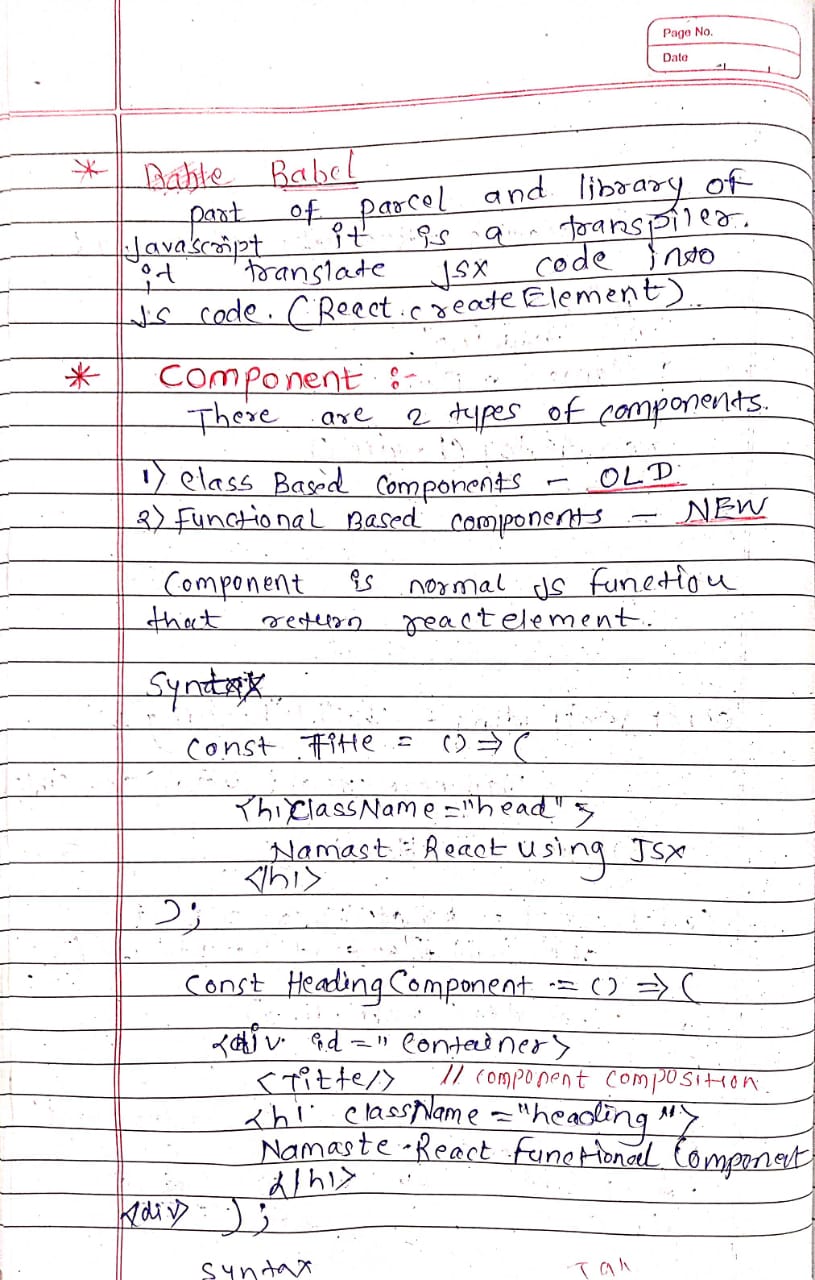 Page No.
Date
* Bable Babel
part of parcel and library of
Javascript it is a transpiler.
it translate JSX code into
JS code. (React.createElement)
* Component :-
There are 2 types of components.
1) Class Based Components - OLD
2) Functional Based components - NEW
Component is normal JS function
that return react element.
Syntax
const Title = () => (
<h1 className="head">
Namast React using JSX
</h1>
);
const HeadingComponent = () => (
<div id=" container>
<Title/> // component composition
<h1 className="heading">
Namaste React functional Component
</h1>
</div> );
Syntax